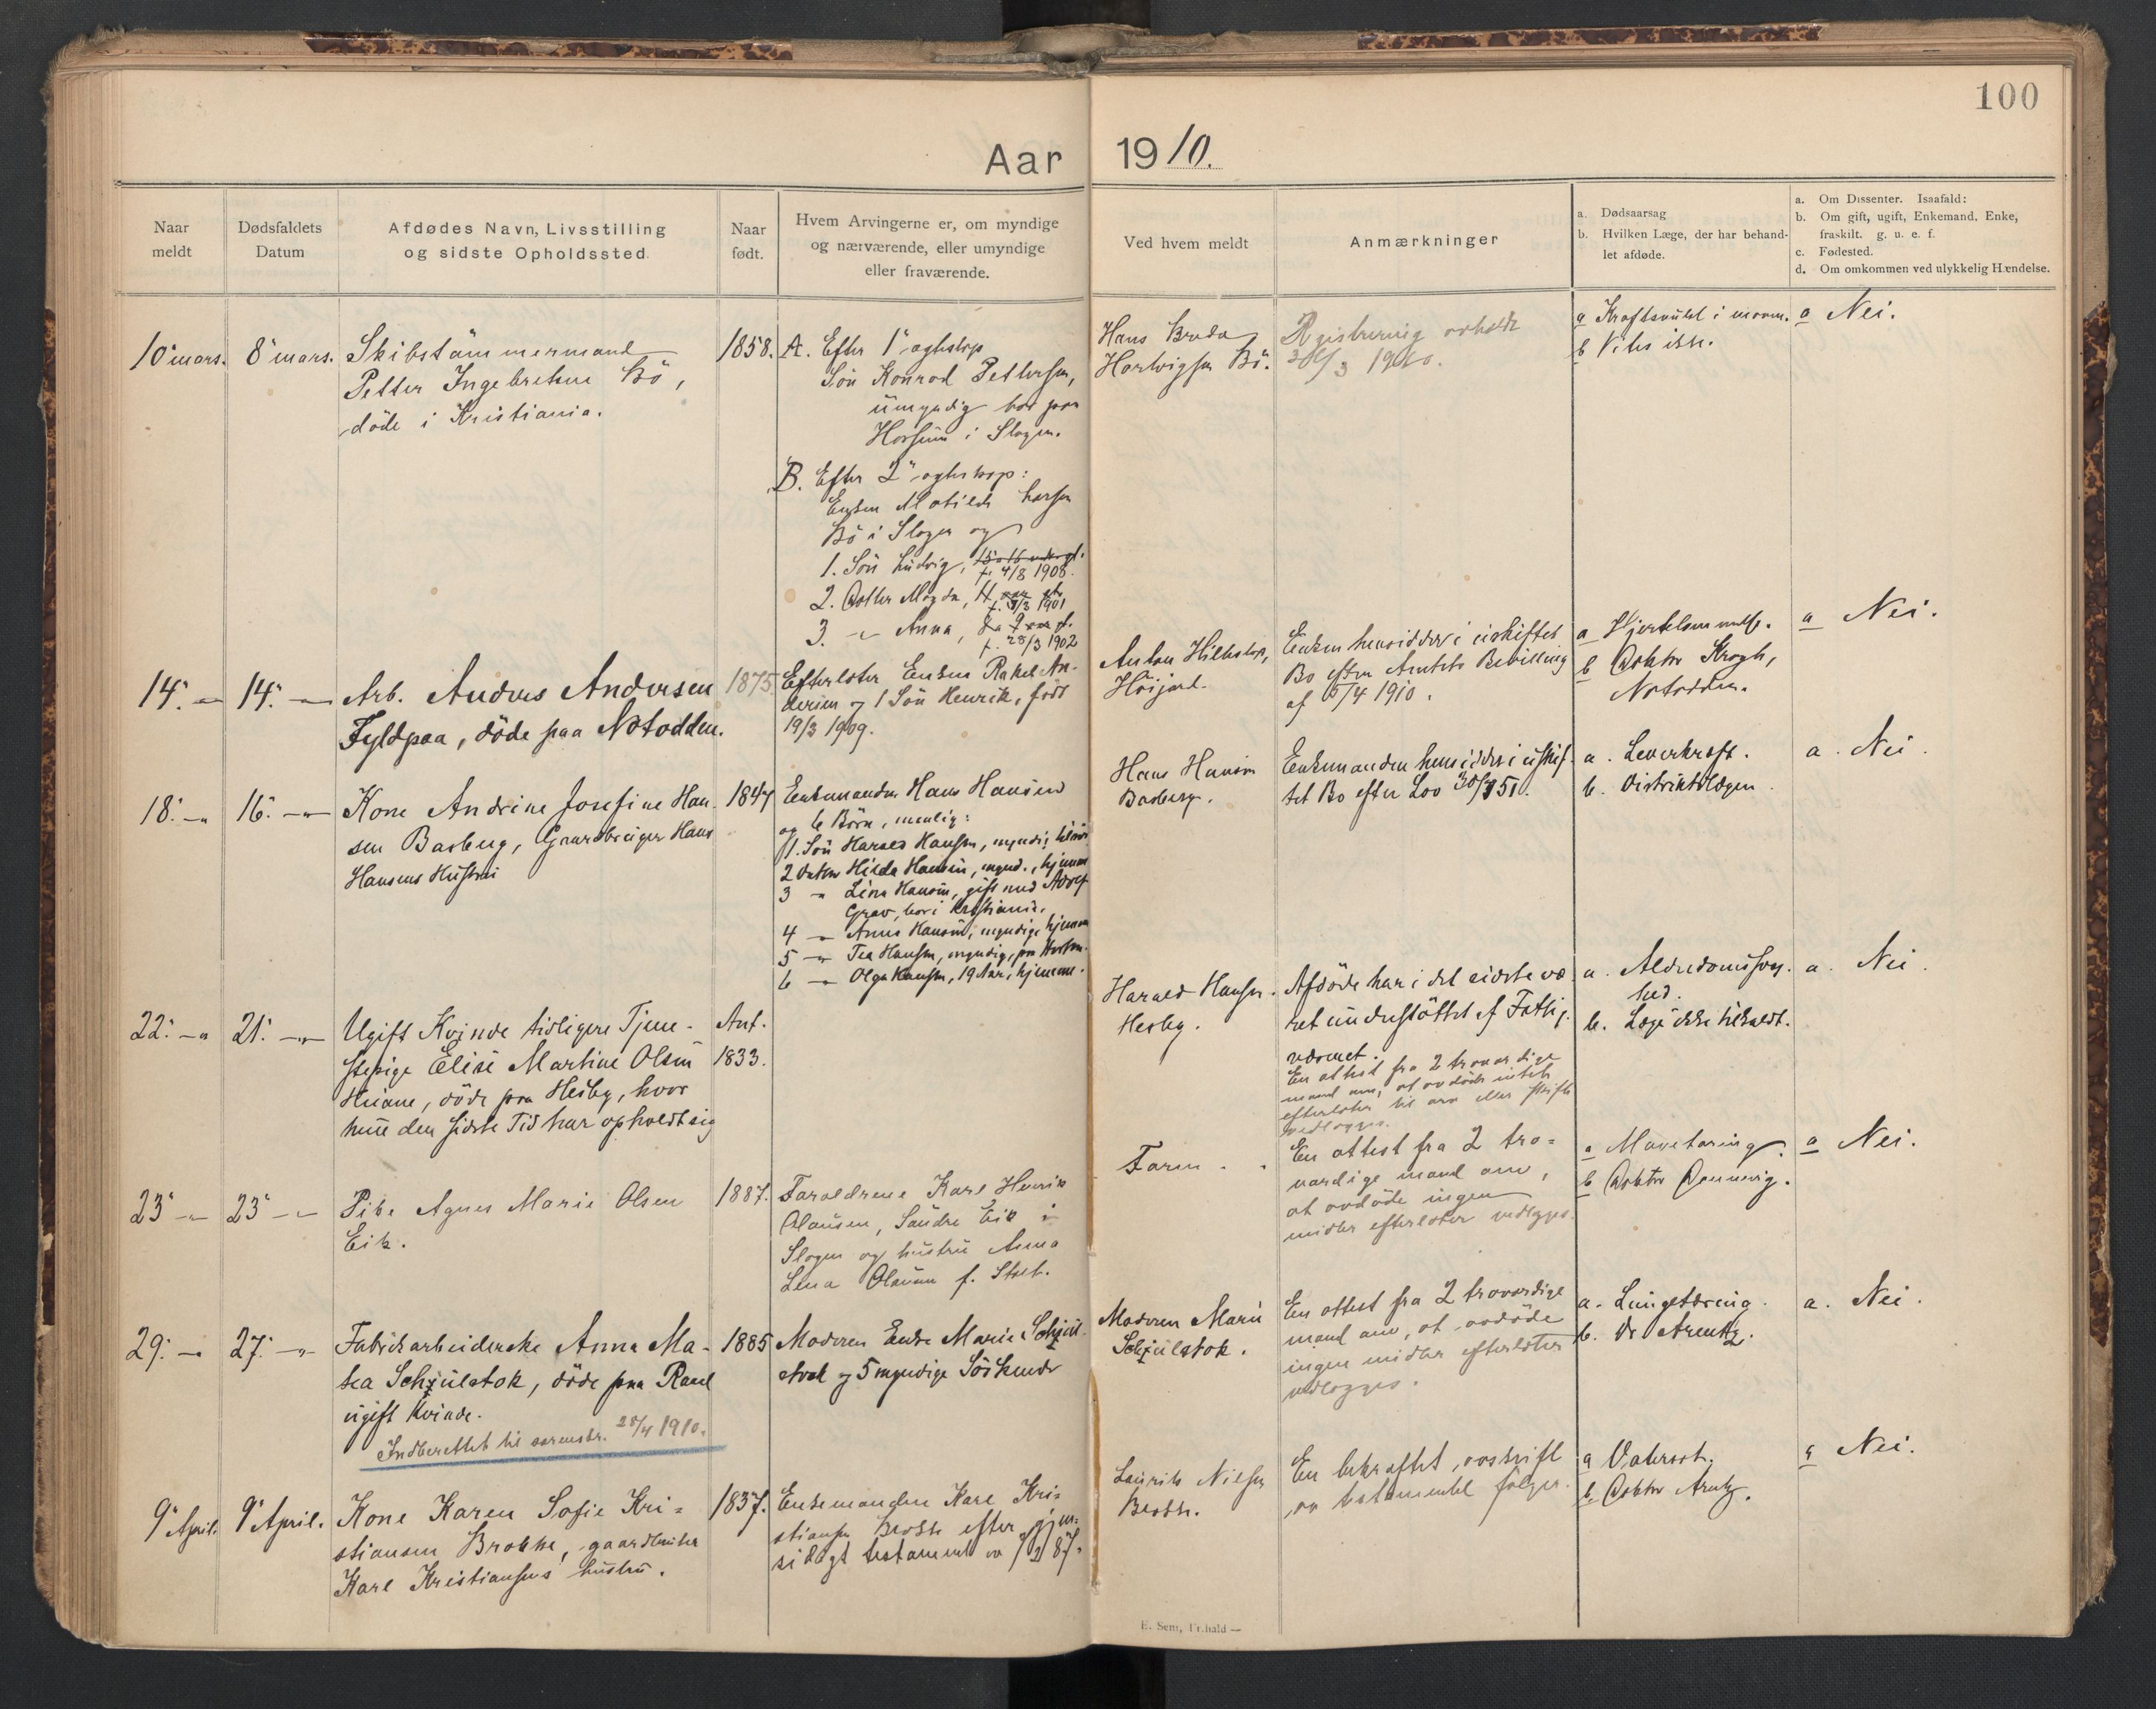 100
Aar 1910.
Naar meldt
Dødsfaldets Datum
Afdødes Navn, Livsstilling og sidste Opholdssted
Naar født.
Hvem Arvingerne er, om myndige
og nærværende, eller umyndige
eller fraværende.
Ved hvem meldt
Anmærkninger
a. Dødsaarsag
b. Hvilken Læge, der har behand-
let afdøde.
a. Om Dissenter. Isaafald:
b. Om gift, ugift, Enkemand, Enke,
fraskilt. g. u. e. f.
c. Fødested.
d. Om omkommen ved ulykkelig Hændelse.
10' mars.
8' mars.
Skibstömmermand
Petter Ingebretsen Bö,
döde i Kristiania.
1858.
A. Efter 1' egteskap
Sön Konrad Pettersen,
umyndig bor paa
i Slagen.
B. Efter 2' egteskap:
Enken Matilde Larsen
Bö i Slagen og
1. Sön Ludvig,
f. 4/8 1908.
2. Datter Magda,
f. 1901
3. -"- Anna,
f. 28/3 1902
Hans Breda
Hartvigsen Bö.
Registrering avholdt
30/3 1910.
a Kræftsvulst i maven.
b Vites ikke.
a Nei.
14' -"-
14' -"-
Arb. Anders Andersen
Fyldpaa, döde paa Notodden.
1875
Efterlater Enken Rakel An-
dersen og 1 Sön Henrik, född
19/3 1909.
Anton Hilleslap,
Enken hensidder i uskiftet
Bo efter Amtets Bevilling
af 5/4 1910.
a Hjertelammelse.
b Doktor Krogh,
Notodden.
a Nei.
18' -"-
16' -"-
Kone Andrine Josefine Han-
sen Basberg, Gaardbruger Hans
Hansens Hustru
1847
Enkemanden Hans Hansen
og 6 Börn, nemlig:
1. Sön Harald Hansen, myndig
2 Datter Hilda Hansen, mynd., hjemme
3 -"- Lina Hansen, gift med Adolf
Grav, bor i Kristiania.
4 -"- Anna Hansen, myndig, hjemme
5 -"- Tea Hansen, myndig, paa
6 -"- Olga Hansen, 19 Aar, hjemme.
Hans Hansen
Basberg.
Enkemanden hensidder i uskif-
tet Bo efter Lov 30/7 51.
a. Leverkræft.
b. Distriktslægen.
a. Nei.
22' -"-
21' -"-
Ugift Kvinde tidligere Tjene-
stepige Elise Martine Olsen
Huane, döde paa Hesby, hvor
hun den sidste Tid har opholdt sig
Ant.
1833.
Harald Hansen
Hesby.
Afdöde har i det sidste væ-
ret understöttet af Fattig-
væsenet.
En attest fra 2 troværdige
mænd om, at avdöde intet
efterlater til arv eller skifte
vedlægges.
a. Alderdomssvag-
hed.
b. Læge ikke tilkaldt.
a. Nei.
23' -"-
23' -"-
Pike Agnes Marie Olsen
Eik.
1887.
Forældrene Karl Henrik
Olausen, Söndre Eik i
Slagen og hustru Anna
Lena Olausen f.
Faren.
En attest fra 2 tro-
værdige mænd om,
at avdöde ingen
midler efterlater vedlægges.
a Mavetæring.
b Doktor Dannevig.
a Nei.
29' -"-
27' -"-
Fabrikarbeiderske Anna Ma-
tea Schjulstok, döde paa Rael
ugift Kvinde.
Indberettet til 28/4 1910.
1885
Moderen Enke Marie Schjul-
stok og 5 myndige Söskende
Moderen Marie
Schjulstok.
En attest fra 2 troværdige
mænd om, at avdöde
ingen midler efterlater
vedlægges.
a. Lungetæring.
b. Dr Arentz.
a. Nei.
9' April.
9' April.
Kone Karen Sofie Kri-
stiansen Brekke, gaardbruker
Karl Kristiansens hustru.
1837.
Enkemanden Karl Kri-
stiansen Brekke efter gjen-
sidigt testament av 87.
Laurits Nilsen
En bekræftet avskrift
av testamentet følger.
a Vatersot.
b Doktor Arentz.
a Nei.
E. Sem, Fr.hald —